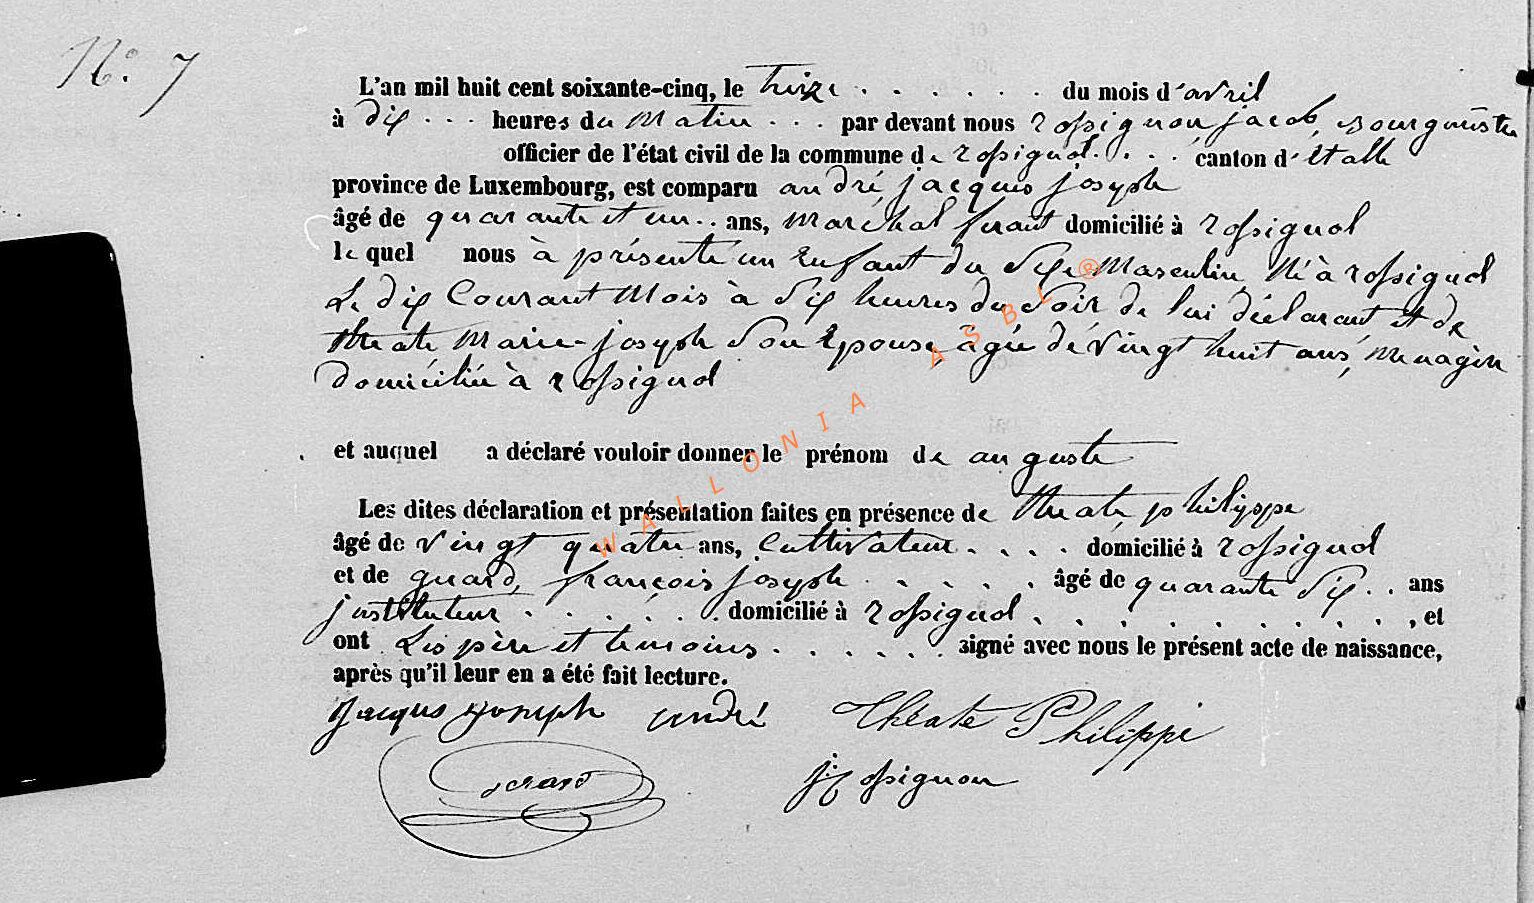 N° 7
L'an mil huit cent soixante-cinq, le treize . . . . . . du mois d'avril
à dix . . . heures du Matin . . . par devant nous rossignon jacob, Bourgmestre
officier de l'état civil de la commune de rossignol . . . . canton d'étalle
province de Luxembourg, est comparu andré jacques joseph
âgé de quarante et un . . ans, maréchal ferant domicilié à rossignol
lequel nous à présenté un Enfant du Sexe Masculin, Né à rossignol
Le dix Courant Mois à Six heures du Soir de lui déclarant et de
theate Marie-joseph Son Epouse, âgée de vingt huit ans, menagère
domiciliée à rossignol
et auquel a déclaré vouloir donner le prénom de auguste
Les dites déclaration et présentation faites en présence de theate philippe
âgé de vingt quatre ans, Cultivateur . . . . domicilié à rossignol
et de françois joseph . . . . . âgé de quarante Six . . ans
instituteur . . . . . . domicilié à rossignol . . . . . . . . . , et
ont Les père et temoins . . . . . . signé avec nous le présent acte de naissance,
après qu'il leur en a été fait lecture.
Jacques Joseph andré Théate Philippe
j: rossignon
WALLONIA ASBL ®